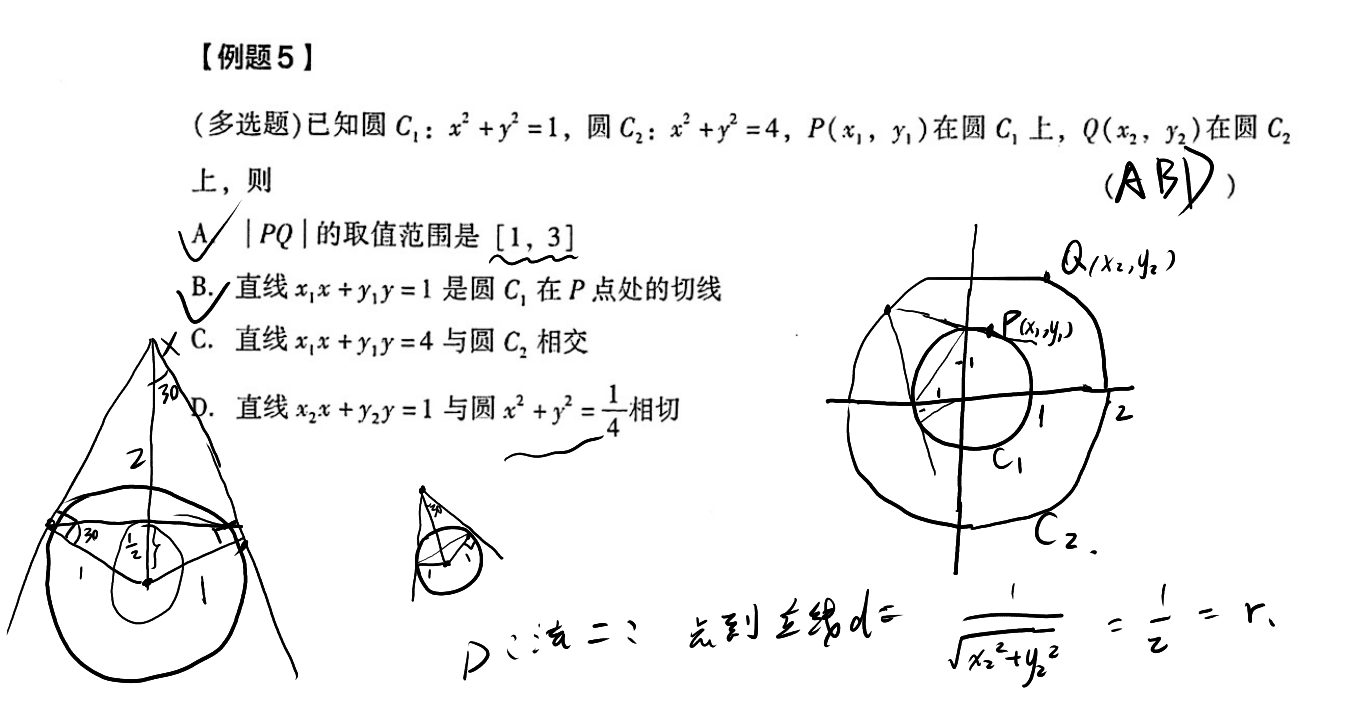 【例题5】
(多选题)已知圆 C₁: x² + y² = 1, 圆 C₂: x² + y² = 4, P(x₁, y₁)在圆 C₁ 上, Q(x₂, y₂)在圆 C₂
上, 则 (ABD)
A. |PQ| 的取值范围是 [1, 3]
B. 直线 x₁x + y₁y = 1 是圆 C₁ 在 P 点处的切线
C. 直线 x₁x + y₁y = 4 与圆 C₂ 相交
D. 直线 x₂x + y₂y = 1 与圆 x² + y² = 1/4 相切
Q(x₂,y₂)
P(x₁,y₁)
1
1
1
2
C₁
C₂.
30
2
30
1/2
1
1
30
1
1
D:法二: 点到直线d= 1/√(x₂²+y₂²) = 1/2 = r.